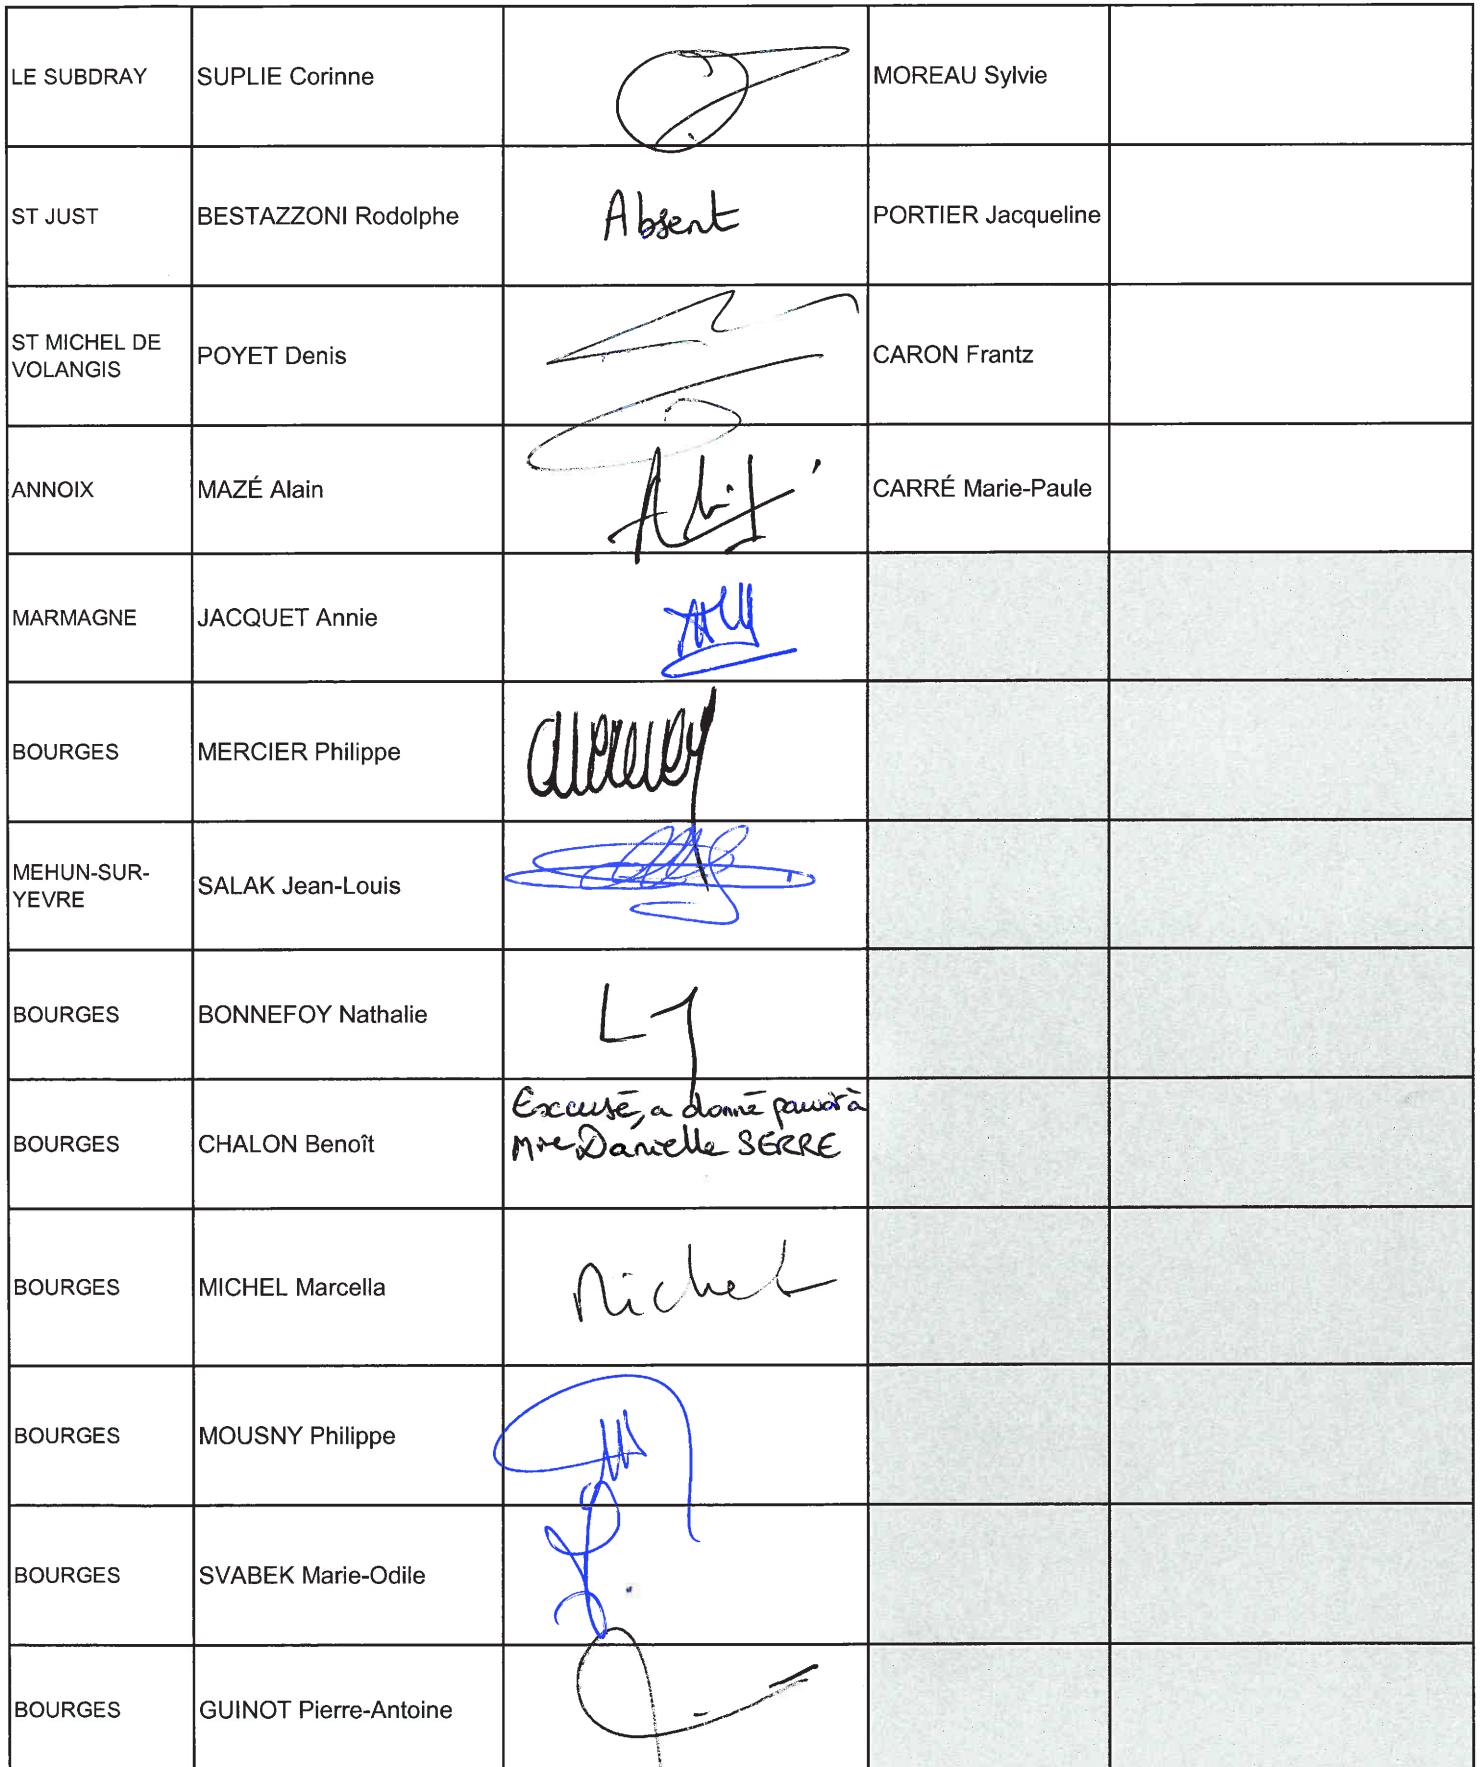 LE SUBDRAY SUPLIE Corinne MOREAU Sylvie
ST JUST BESTAZZONI Rodolphe Absent PORTIER Jacqueline
ST MICHEL DE
VOLANGIS POYET Denis CARON Frantz
ANNOIX MAZÉ Alain CARRÉ Marie-Paule
MARMAGNE JACQUET Annie
BOURGES MERCIER Philippe
MEHUN-SUR-
YEVRE SALAK Jean-Louis
BOURGES BONNEFOY Nathalie
Excusé, a donné pouvoir à
Mme Danielle SERRE
BOURGES CHALON Benoît
BOURGES MICHEL Marcella Michel
BOURGES MOUSNY Philippe
BOURGES SVABEK Marie-Odile
BOURGES GUINOT Pierre-Antoine